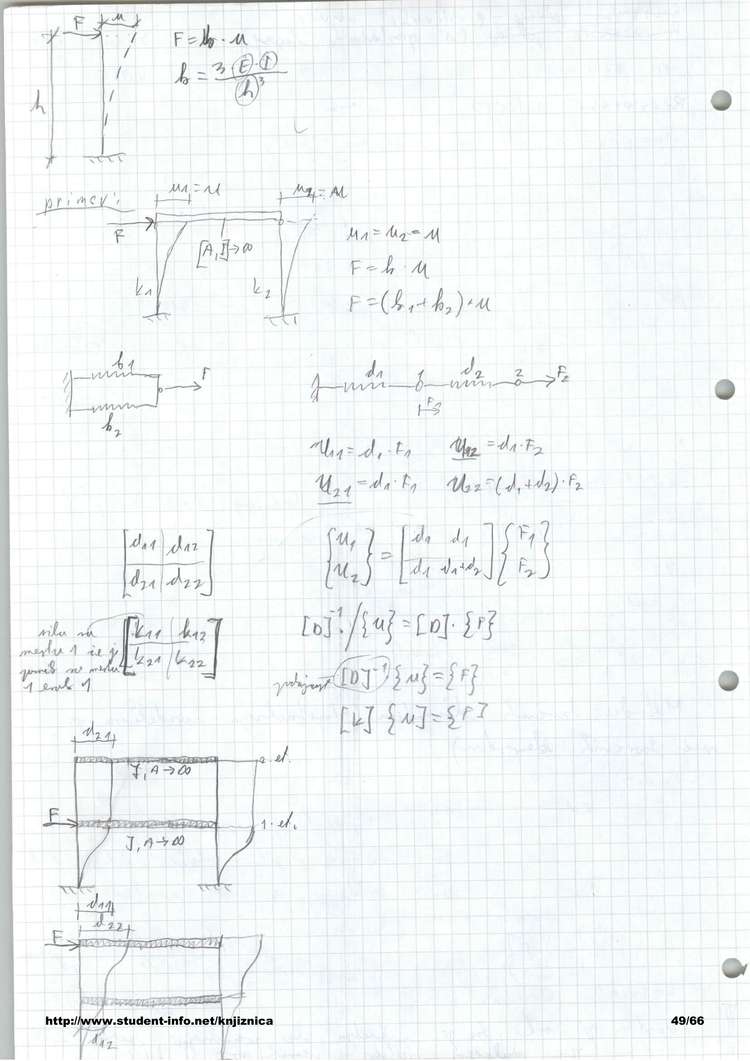 F u
F = k · u
k = 3 E · I / h³
h
primer:
u1 = u
F
[A, I] → ∞
k1
k2
u1 = u2 = u
F = k · u
F = (k1 + k2) · u
k1
F
k2
d1 1 d2 2 F2
u11 = d1 · F1 u12 = d1 · F2
u21 = d1 · F1 u22 = (d1 + d2) · F2
[d11 | d12
d21 | d22]
{u1
u2} = [d1 d1
d1 d1+d2] {F1
F2}
[k11 | k12
k21 | k22]
silu na
mestu 1 če je
pomik na mestu
1 enak 1
[D]⁻¹ · / {u} = [D] · {F}
[D]⁻¹ · {u} = {F}
[K] {u} = {F}
d21
2. et.
I, A → ∞
F
1. et.
I, A → ∞
d11
d22
F
d12
http://www.student-info.net/knjiznica
49/66